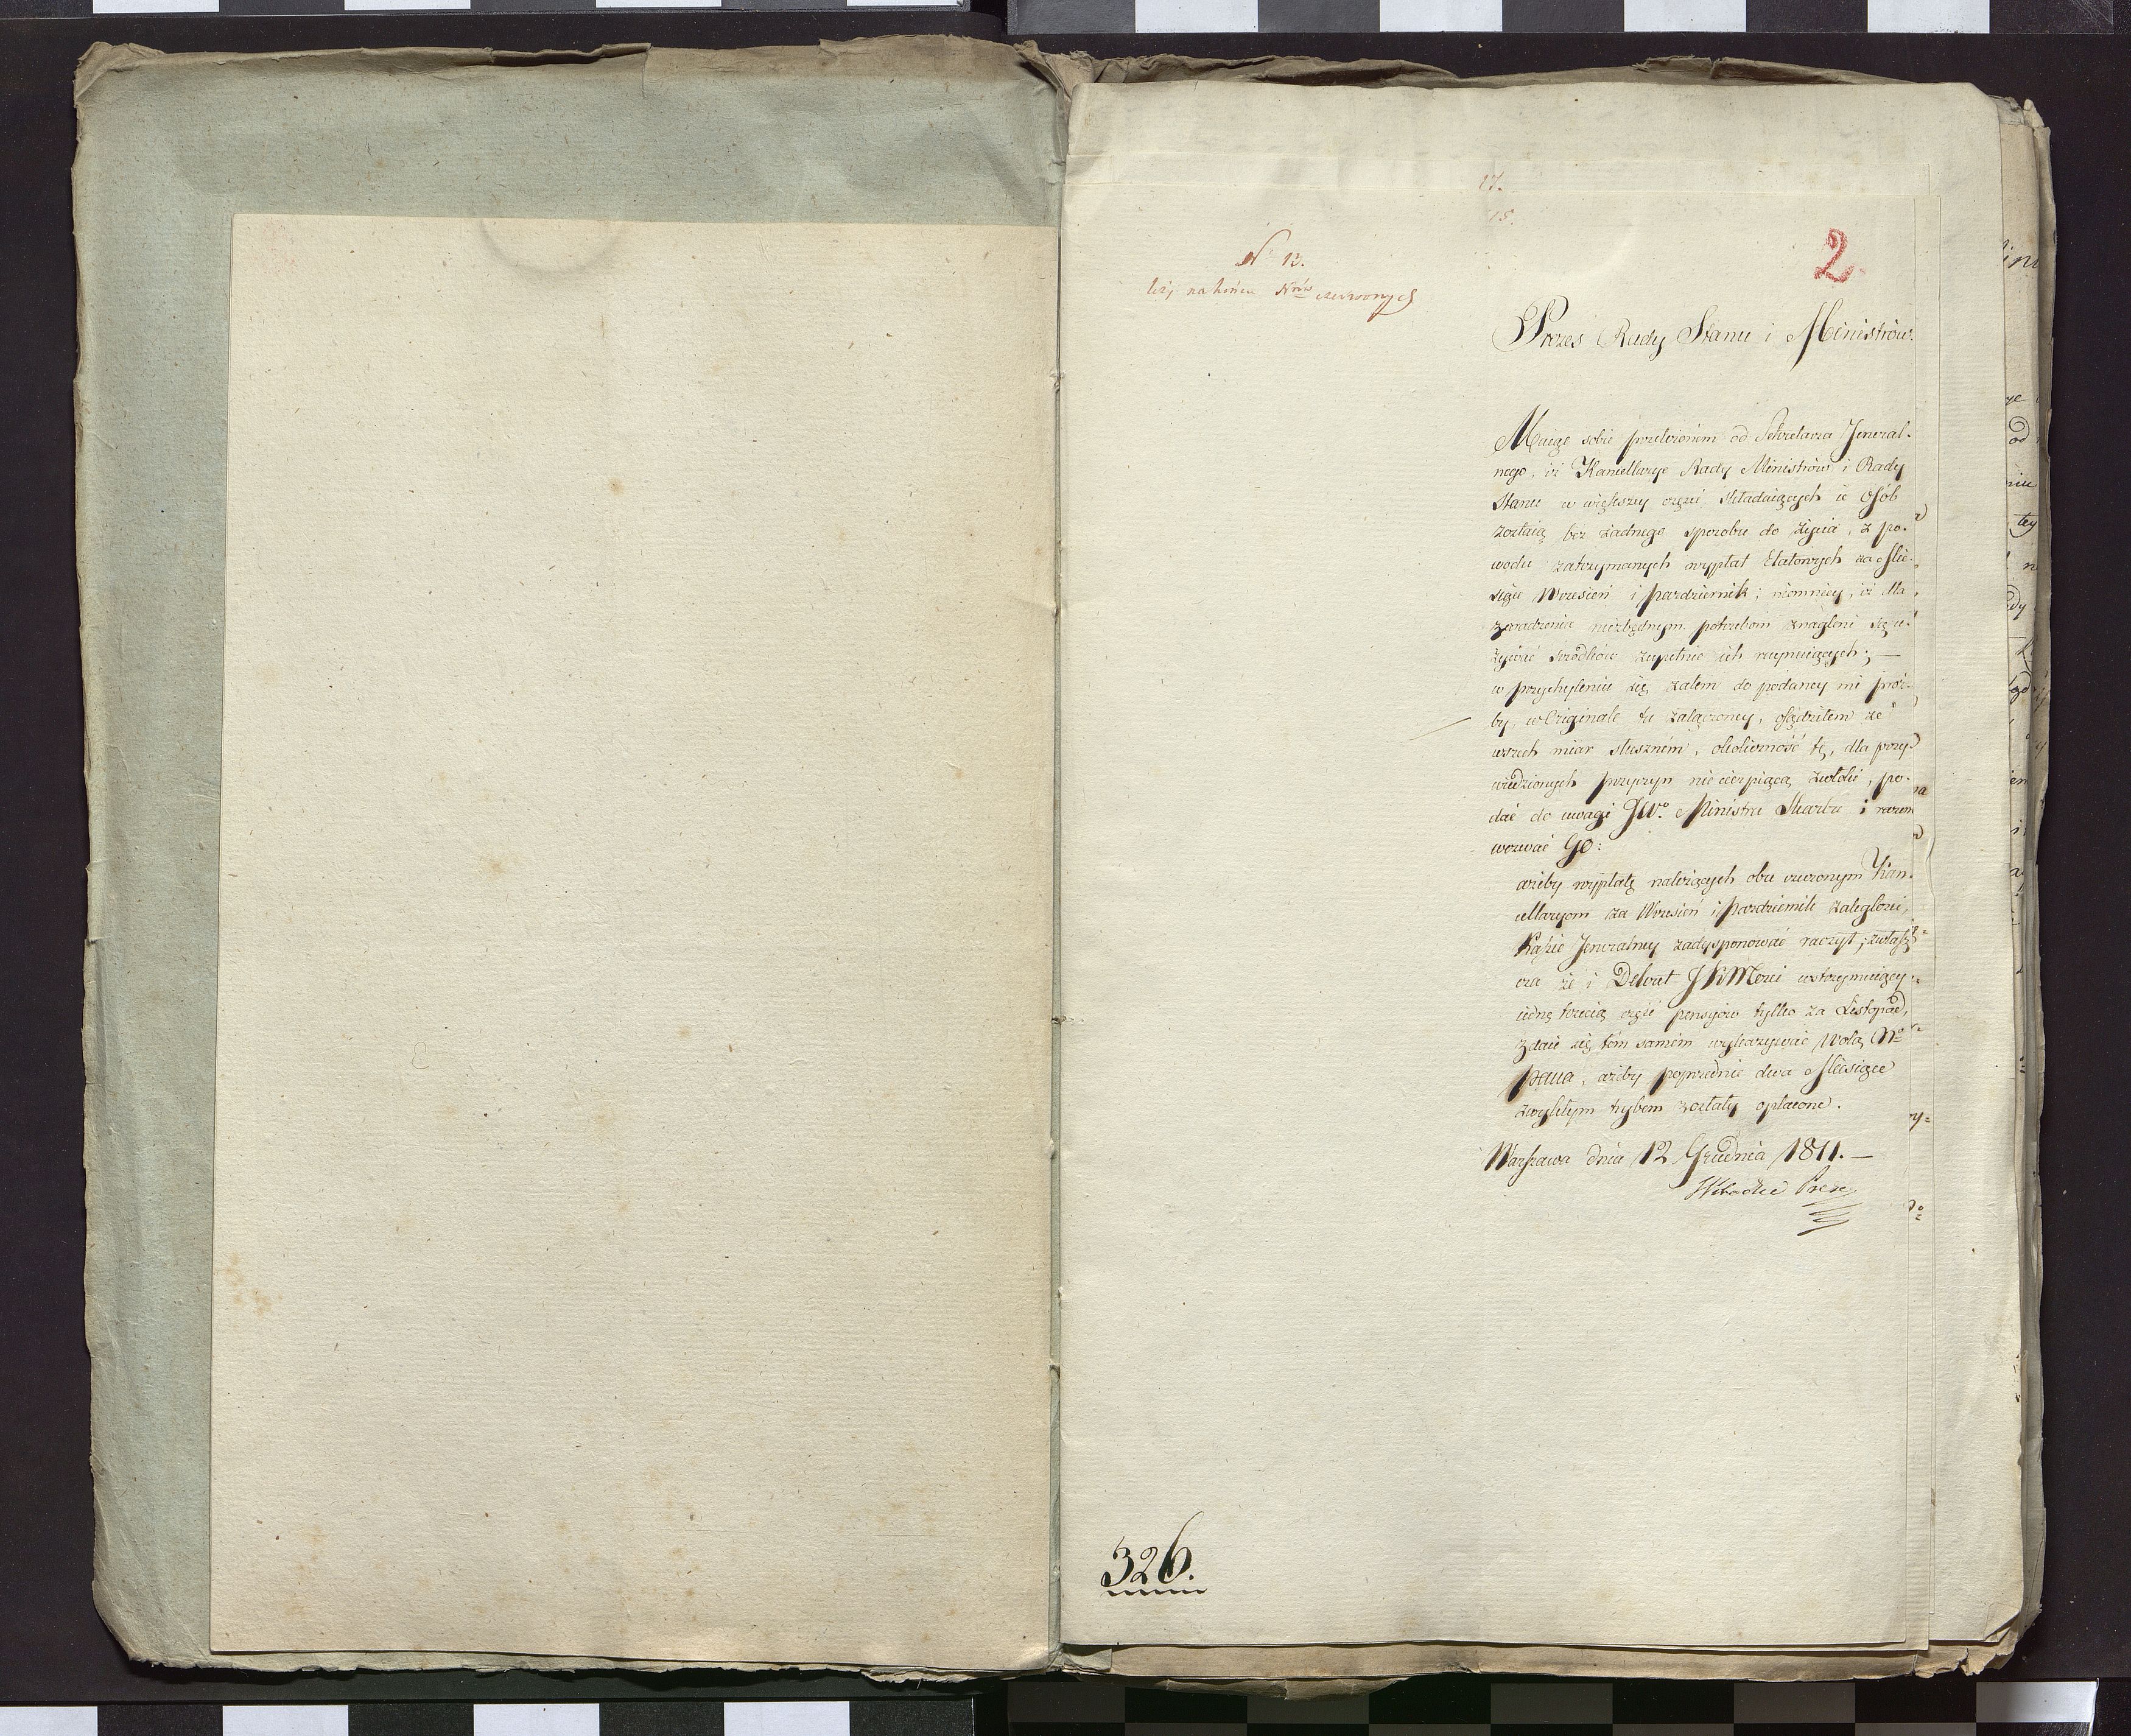 17.
15.
N 13.
leży na końcu Nrów czerwonych
2
Prezes Rady Stanu i Ministrów.
Maiąc sobie przełożonem od Sekretarza Jeneral-
nego, iż Kancellarye Rady Ministrów i Rady
Stanu w większey części składaiących ie Osób
zostaią bez żadnego sposobu do życia, z po-
wodu zatrzymanych wypłat Etatowych za Mie-
siące Wrzesień i Pazdziernik; niemniey, iż dla
zaradzenia niezbędnym potrzebom znagleni są u-
żywać srzodków zupełnie ich ruynuiących; —
w przychyleniu się zatem do podaney mi proź-
by, w Originale tu załączoney, osądziłem ze
wszech miar słusznem, okoliczność tę, dla przy-
wiedzionych przyczyn niecierpiącą zwłoki, po-
dać do uwagi JWo. Ministra Skarbu i razem
wezwać Go:
ażeby wypłatę należących obu rzeczonym Kan-
cellaryom za Wrzesień i Pazdziernik zaległości,
Kassie Jeneralney zadysponować raczył; zwłasz-
cza że i Dekret JKMości wstrzymuiący
iedną trzecią część pensyów tylko za Listopad,
zdaie się tém samém wykazywać Wolą No
Pana, ażeby poprzednie dwa Miesiące
zwykłym trybem zostały opłacone.
Warszawa dnia 12 Grudnia 1811. —
Prezes
326.